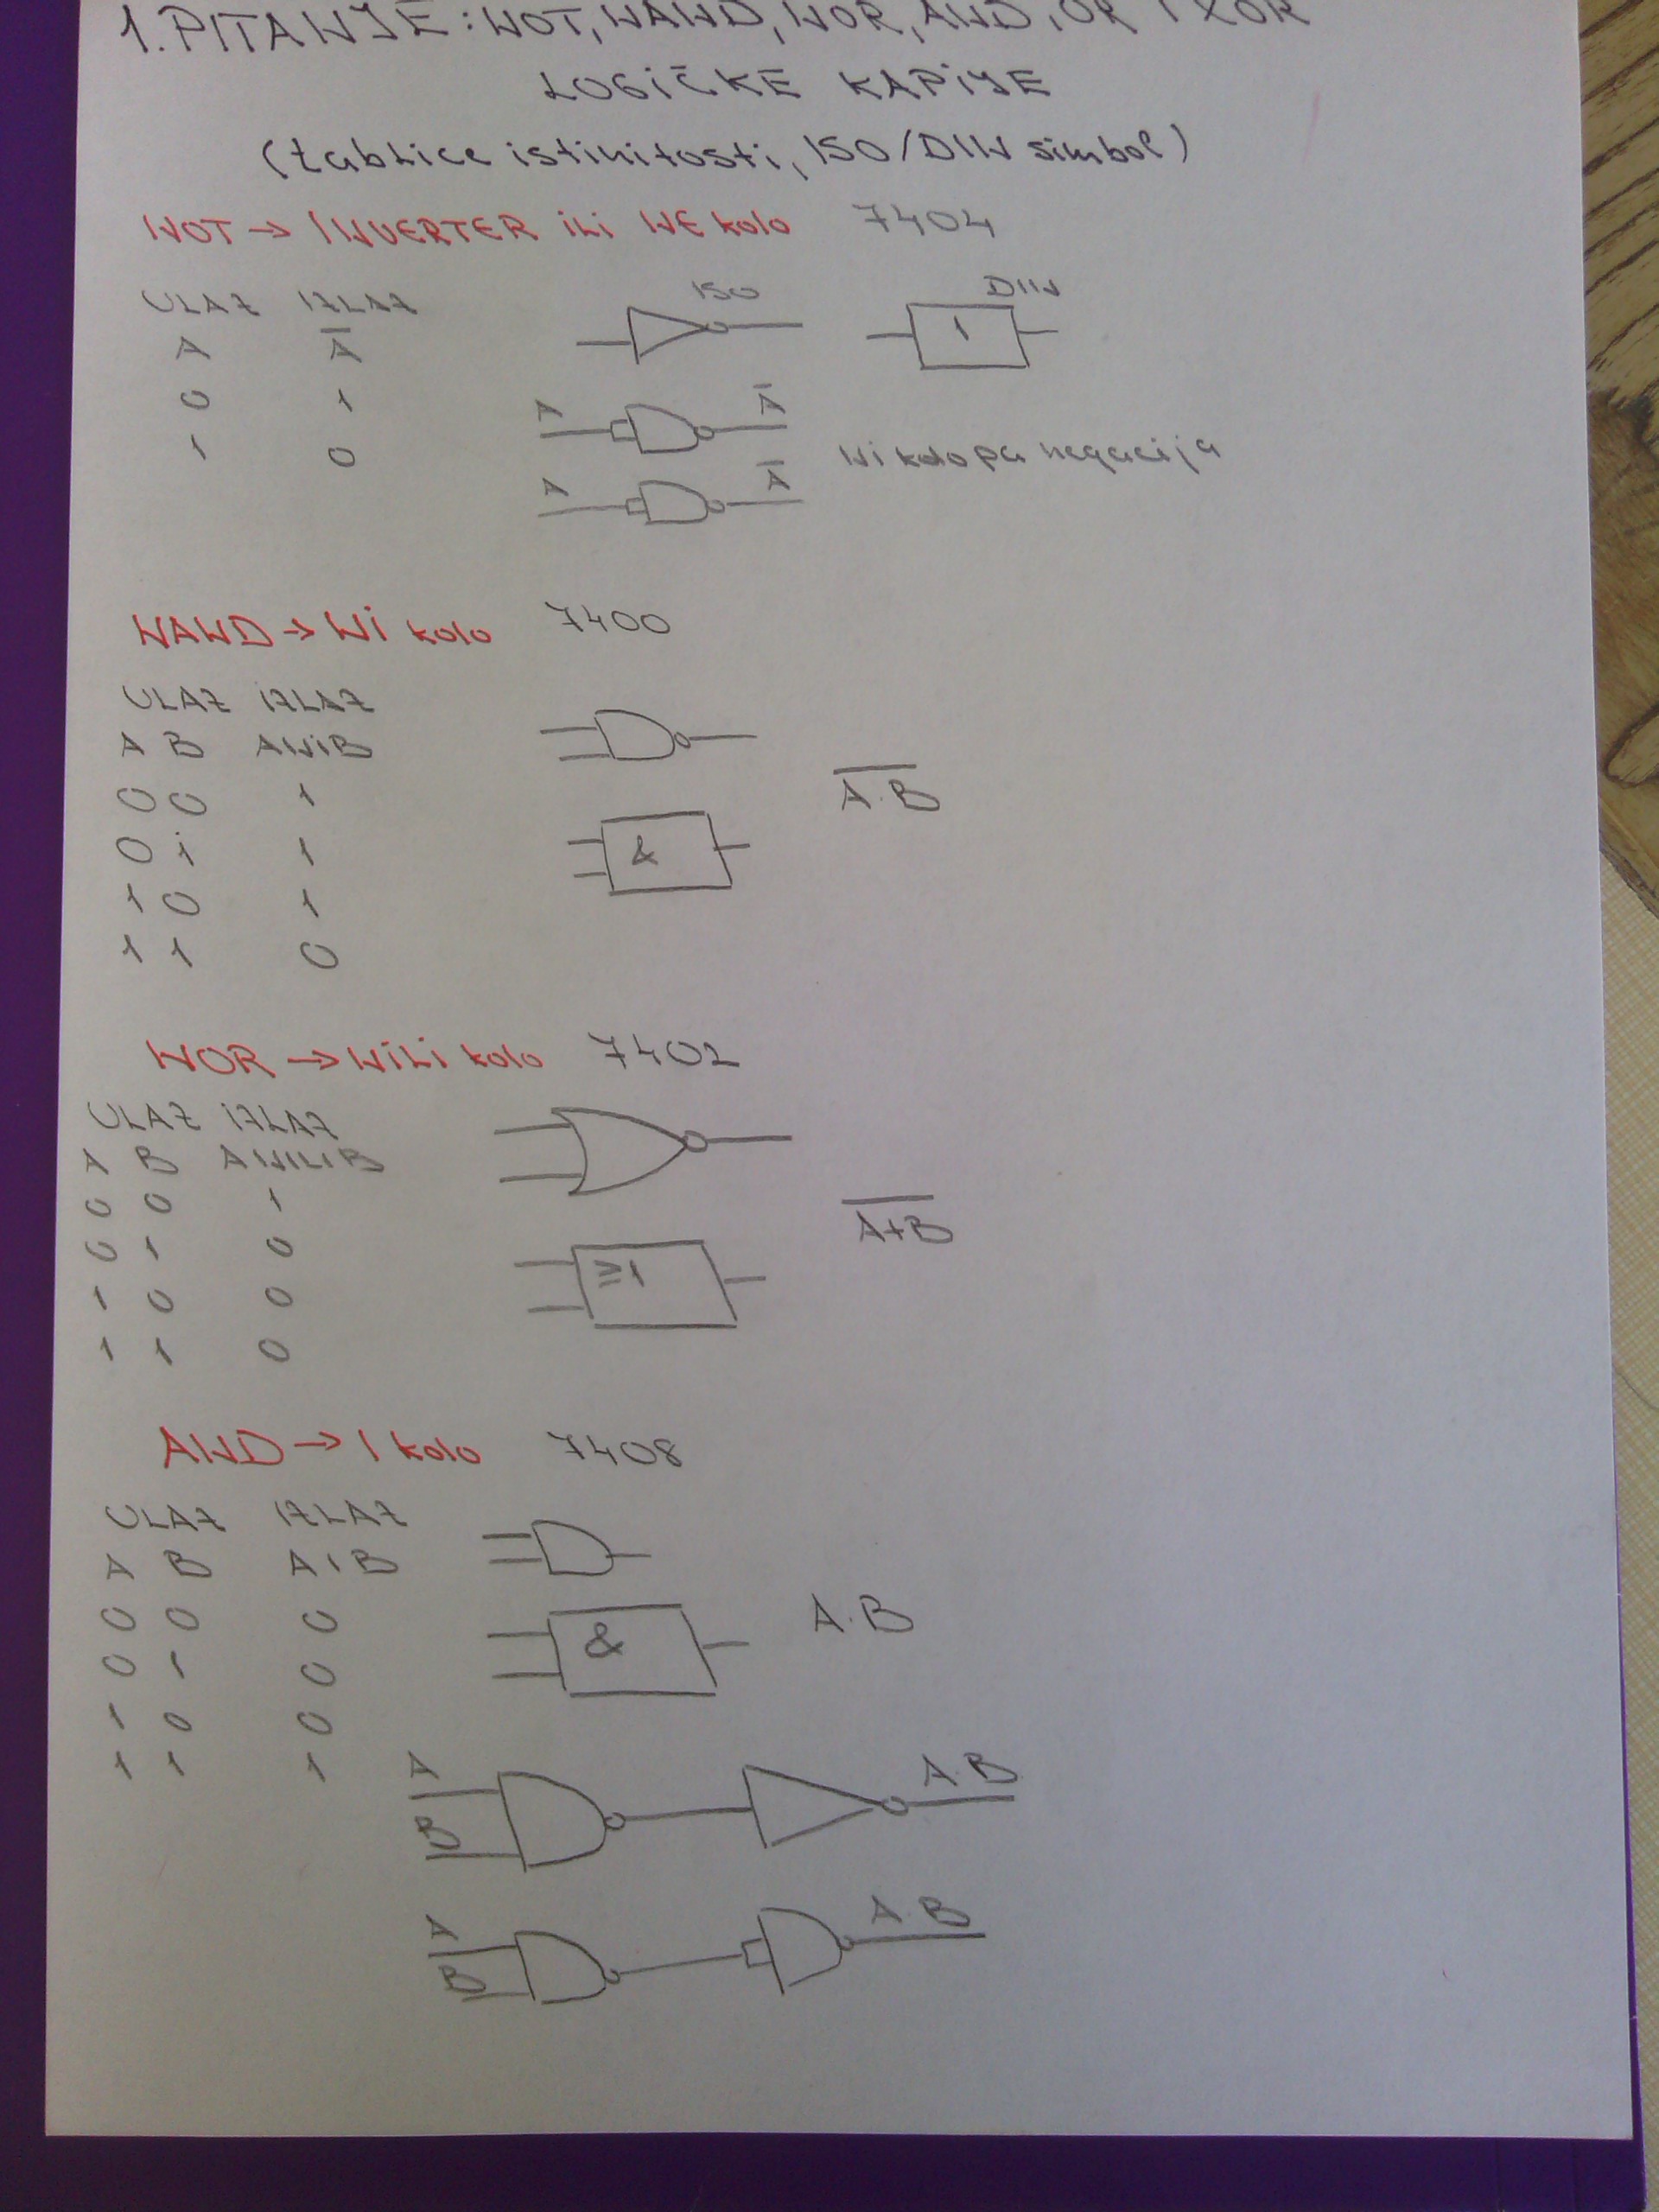 1. PITANJE: NOT, NAND, NOR, AND, OR I XOR
LOGIČKE KAPIJE
(tablice istinitosti, ISO/DIN simbol)
NOT → INVERTER ili NE kolo 7404
ULAZ IZLAZ ISO DIN
A A̅ 1
0 1 A A̅
1 0 Ni kolo pa negacija
A A̅
NAND → Ni kolo 7400
ULAZ IZLAZ
A B ANiB
0 0 1 A̅·̅B̅
0 1 1 &
1 0 1
1 1 0
NOR → NiLi kolo 7402
ULAZ IZLAZ
A B ANILIB
0 0 1 A̅+̅B̅
0 1 0 ≥1
1 0 0
1 1 0
AND → I kolo 7408
ULAZ IZLAZ
A B A I B
0 0 0 A·B
0 1 0 &
1 0 0
1 1 1
A A·B
B
A A·B
B